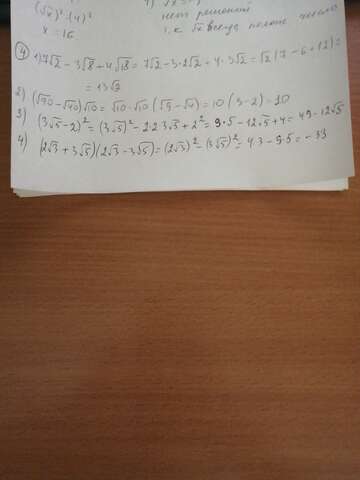 (√x)² = (4)²
x = 16
нет решений
т.к √x всегда полож. число
④ 1) 7√2 - 3√8 + 4√18 = 7√2 - 3·2√2 + 4·3√2 = √2(7 - 6 + 12) =
= 13√2
2) (√90 - √40)√10 = √10·√10(√9 - √4) = 10(3 - 2) = 10
3) (3√5 - 2)² = (3√5)² - 2·2·3√5 + 2² = 9·5 - 12√5 + 4 = 49 - 12√5
4) (2√3 + 3√5)(2√3 - 3√5) = (2√3)² - (3√5)² = 4·3 - 9·5 = -33